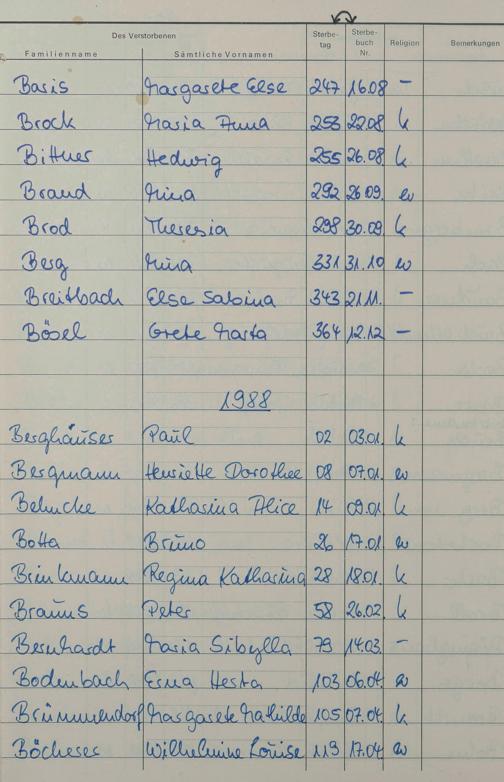 Des Verstorbenen Sterbe- tag Sterbe- buch Nr. Religion Bemerkungen
Familienname Sämtliche Vornamen
Basis Margarete Else 247 16.08 –
Brock Maria Anna 253 22.08 k
Bittner Hedwig 255 26.08 k
Braud Mina 292 26 09. ev
Brod Theresia 298 30.09. k
Berg Mina 331 31.10 ev
Breitbach Else Sabina 343 21 11. –
Bösel Grete Marta 364 12.12 –
1988
Berghäuser Paul 02 03.01. k
Bergmann Henriette Dorothee 08 07.01. ev
Behncke Katharina Alice 14 09.01. k
Botta Bruno 26 17.01. ev
Brinkmann Regina Katharina 28 18.01. k
Brauns Peter 58 26.02. k
Bernhardt Maria Sibylla 79 14.03. –
Bodenbach Erna Herta 103 06.04. ev
Brümmendorf Margarete Mathilde 105 07.04. k
Böcherer Wilhelmine Louise 119 17.04. ev